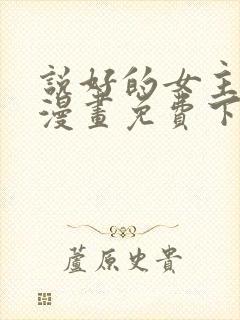 説好的女主
漫畫免費下
蘆原史貴